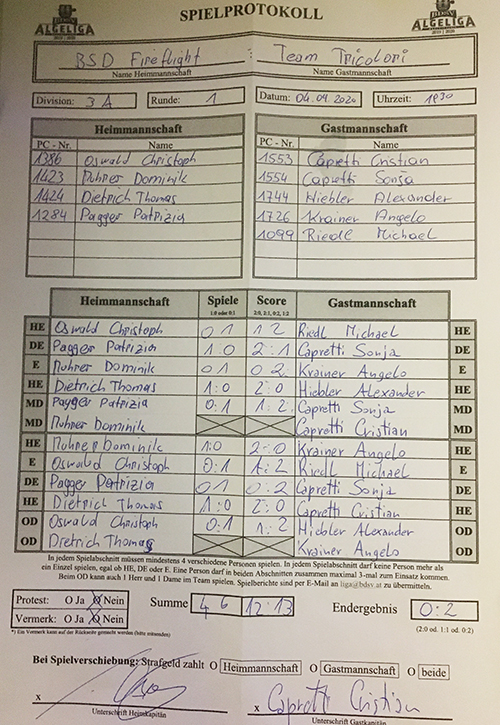 ALGELIGA
SPIELPROTOKOLL
ALGELIGA
BSD Fireflight : Team Tricolori
Name Heimmannschaft Name Gastmannschaft
Division: 3 A Runde: 1 Datum: 04.09.2020 Uhrzeit: 1930
Heimmannschaft Gastmannschaft
PC - Nr. Name PC - Nr. Name
1386 Oswald Christoph 1553 Capretti Cristian
1423 Muhrer Dominik 1554 Capretti Sonja
1424 Dietrich Thomas 1744 Hiebler Alexander
1284 Pagger Patrizia 1726 Krainer Angelo
1099 Riedl Michael
Heimmannschaft Spiele Score Gastmannschaft
1:0 oder 0:1 2:0, 2:1, 0:2, 1:2
HE Oswald Christoph 0 1 1 2 Riedl Michael HE
DE Pagger Patrizia 1:0 2:1 Capretti Sonja DE
E Muhrer Dominik 0 1 0 2 Krainer Angelo E
HE Dietrich Thomas 1:0 2:0 Hiebler Alexander HE
MD Pagger Patrizia 0:1 1:2 Capretti Sonja MD
MD Muhrer Dominik Capretti Cristian MD
HE Muhrer Dominik 1:0 2:0 Krainer Angelo HE
E Oswald Christoph 0:1 1:2 Riedl Michael E
DE Pagger Patrizia 0 1 0:2 Capretti Sonja DE
HE Dietrich Thomas 1:0 2:0 Capretti Cristian HE
OD Oswald Christoph 0:1 1:2 Hiebler Alexander OD
OD Dietrich Thomas Krainer Angelo OD
In jedem Spielabschnitt müssen mindestens 4 verschiedene Personen spielen. In jedem Spielabschnitt darf keine Person mehr als
ein Einzel spielen, egal ob HE, DE oder E. Eine Person darf in beiden Abschnitten zusammen maximal 3-mal zum Einsatz kommen.
Beim OD kann auch 1 Herr und 1 Dame im Team spielen. Spielberichte sind per E-Mail an liga@bdsv.at zu übermitteln.
Protest: O Ja O Nein Summe 4 6 12:13 Endergebnis 0:2
Vermerk: *) O Ja O Nein (2:0 od. 1:1 od. 0:2)
*) Ein Vermerk kann auf der Rückseite gemacht werden (bitte ausfüllen)
Bei Spielverschiebung: Strafgeld zahlt O Heimmannschaft O Gastmannschaft O beide
x x Capretti Cristian
Unterschrift Heimkapitän Unterschrift Gastkapitän